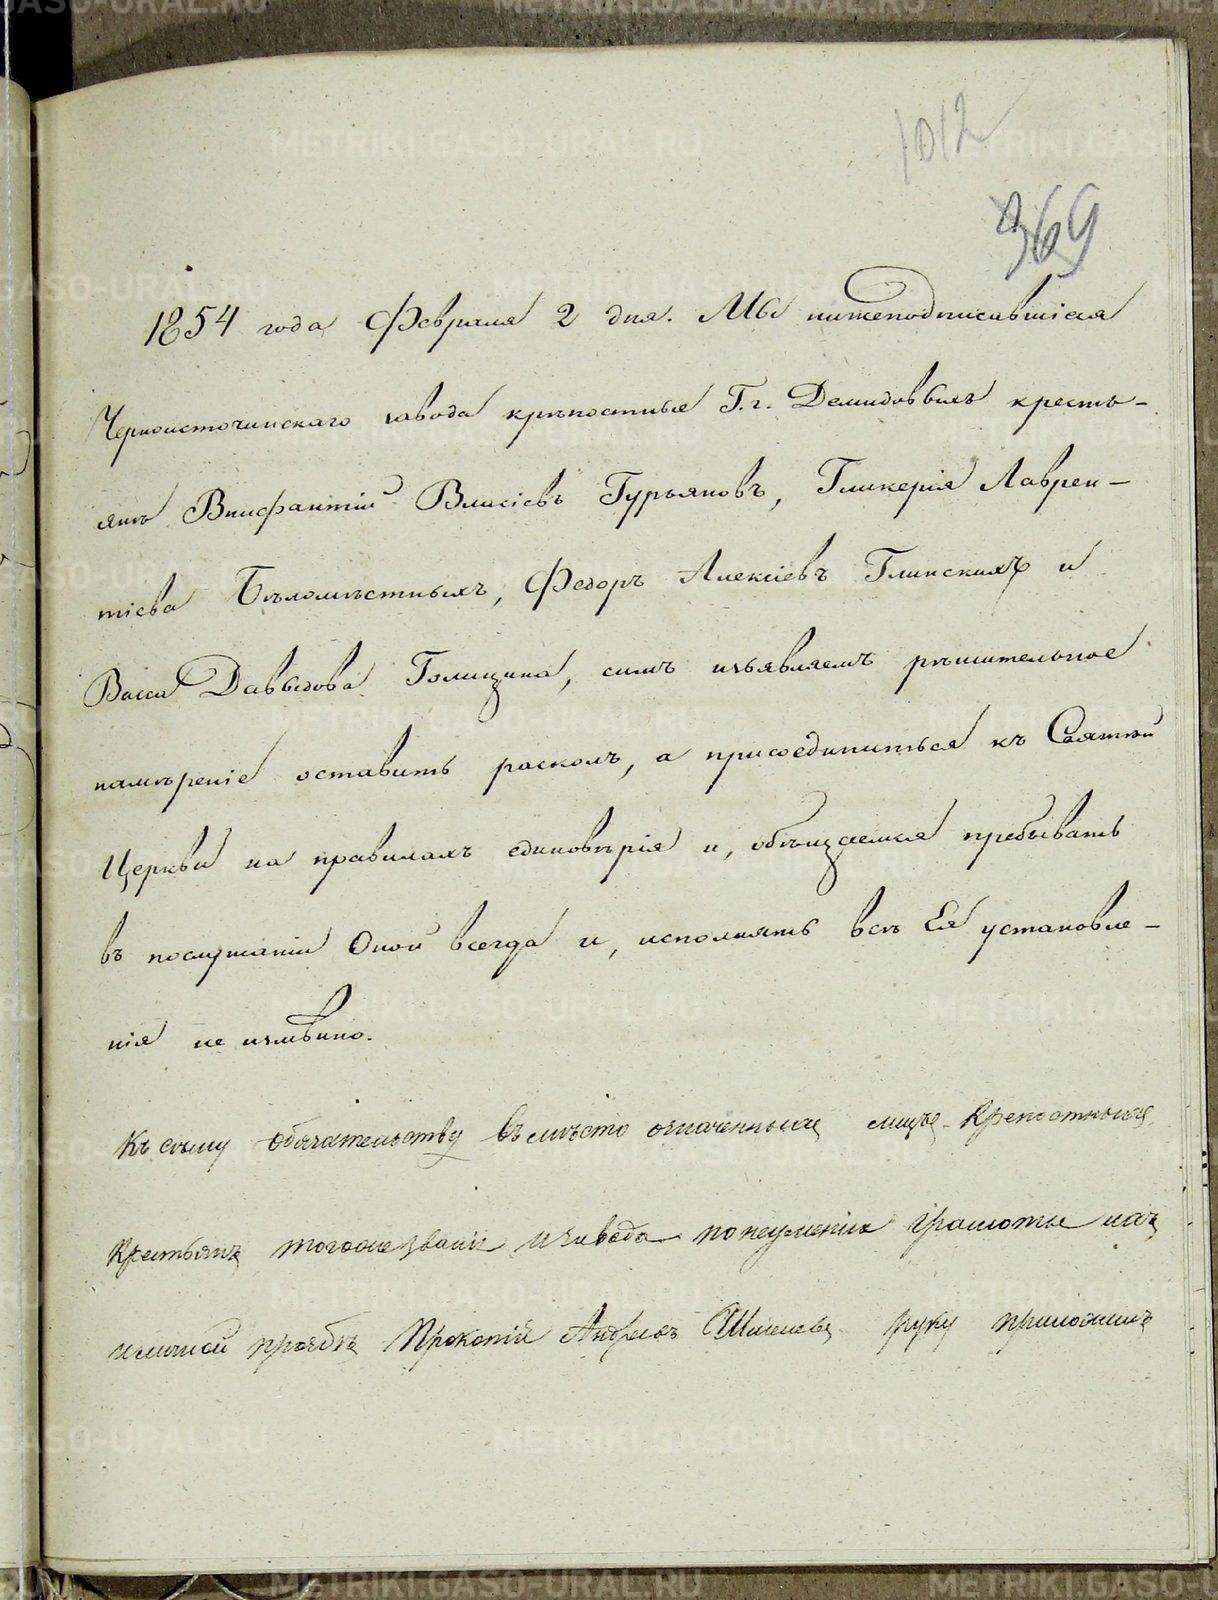 1012
369
1854 года Февраля 2 дня. Мы нижеподписавшіеся
Черноисточинскаго завода крѣпостные Г.г. Демидовыхъ кресть-
янѣ Внифантій Власіевъ Гурьяновъ, Гликерія Лаврен-
тіева Бѣломѣстныхъ, Федоръ Алексіевъ Глинскихъ и
Васса Давыдова Голицина, симъ изъявляемъ рѣшительное
намѣреніе оставить расколъ, а присоединиться къ Святой
Церкви на правилахъ единовѣрія и, обѣщаемся пребывать
въ послушаніи Оной всегда и, исполнять всѣ Ея установле-
нія не измѣнно.
Къ сему обязательству въместо означенныхъ лицъ Крепостныхъ
Крестьянъ тогоже званія изавода понеуменію грамоты ихъ
иличной прозбѣ Прокопій Андреевъ руку приложилъ
METRIKI.GASO-URAL.RU